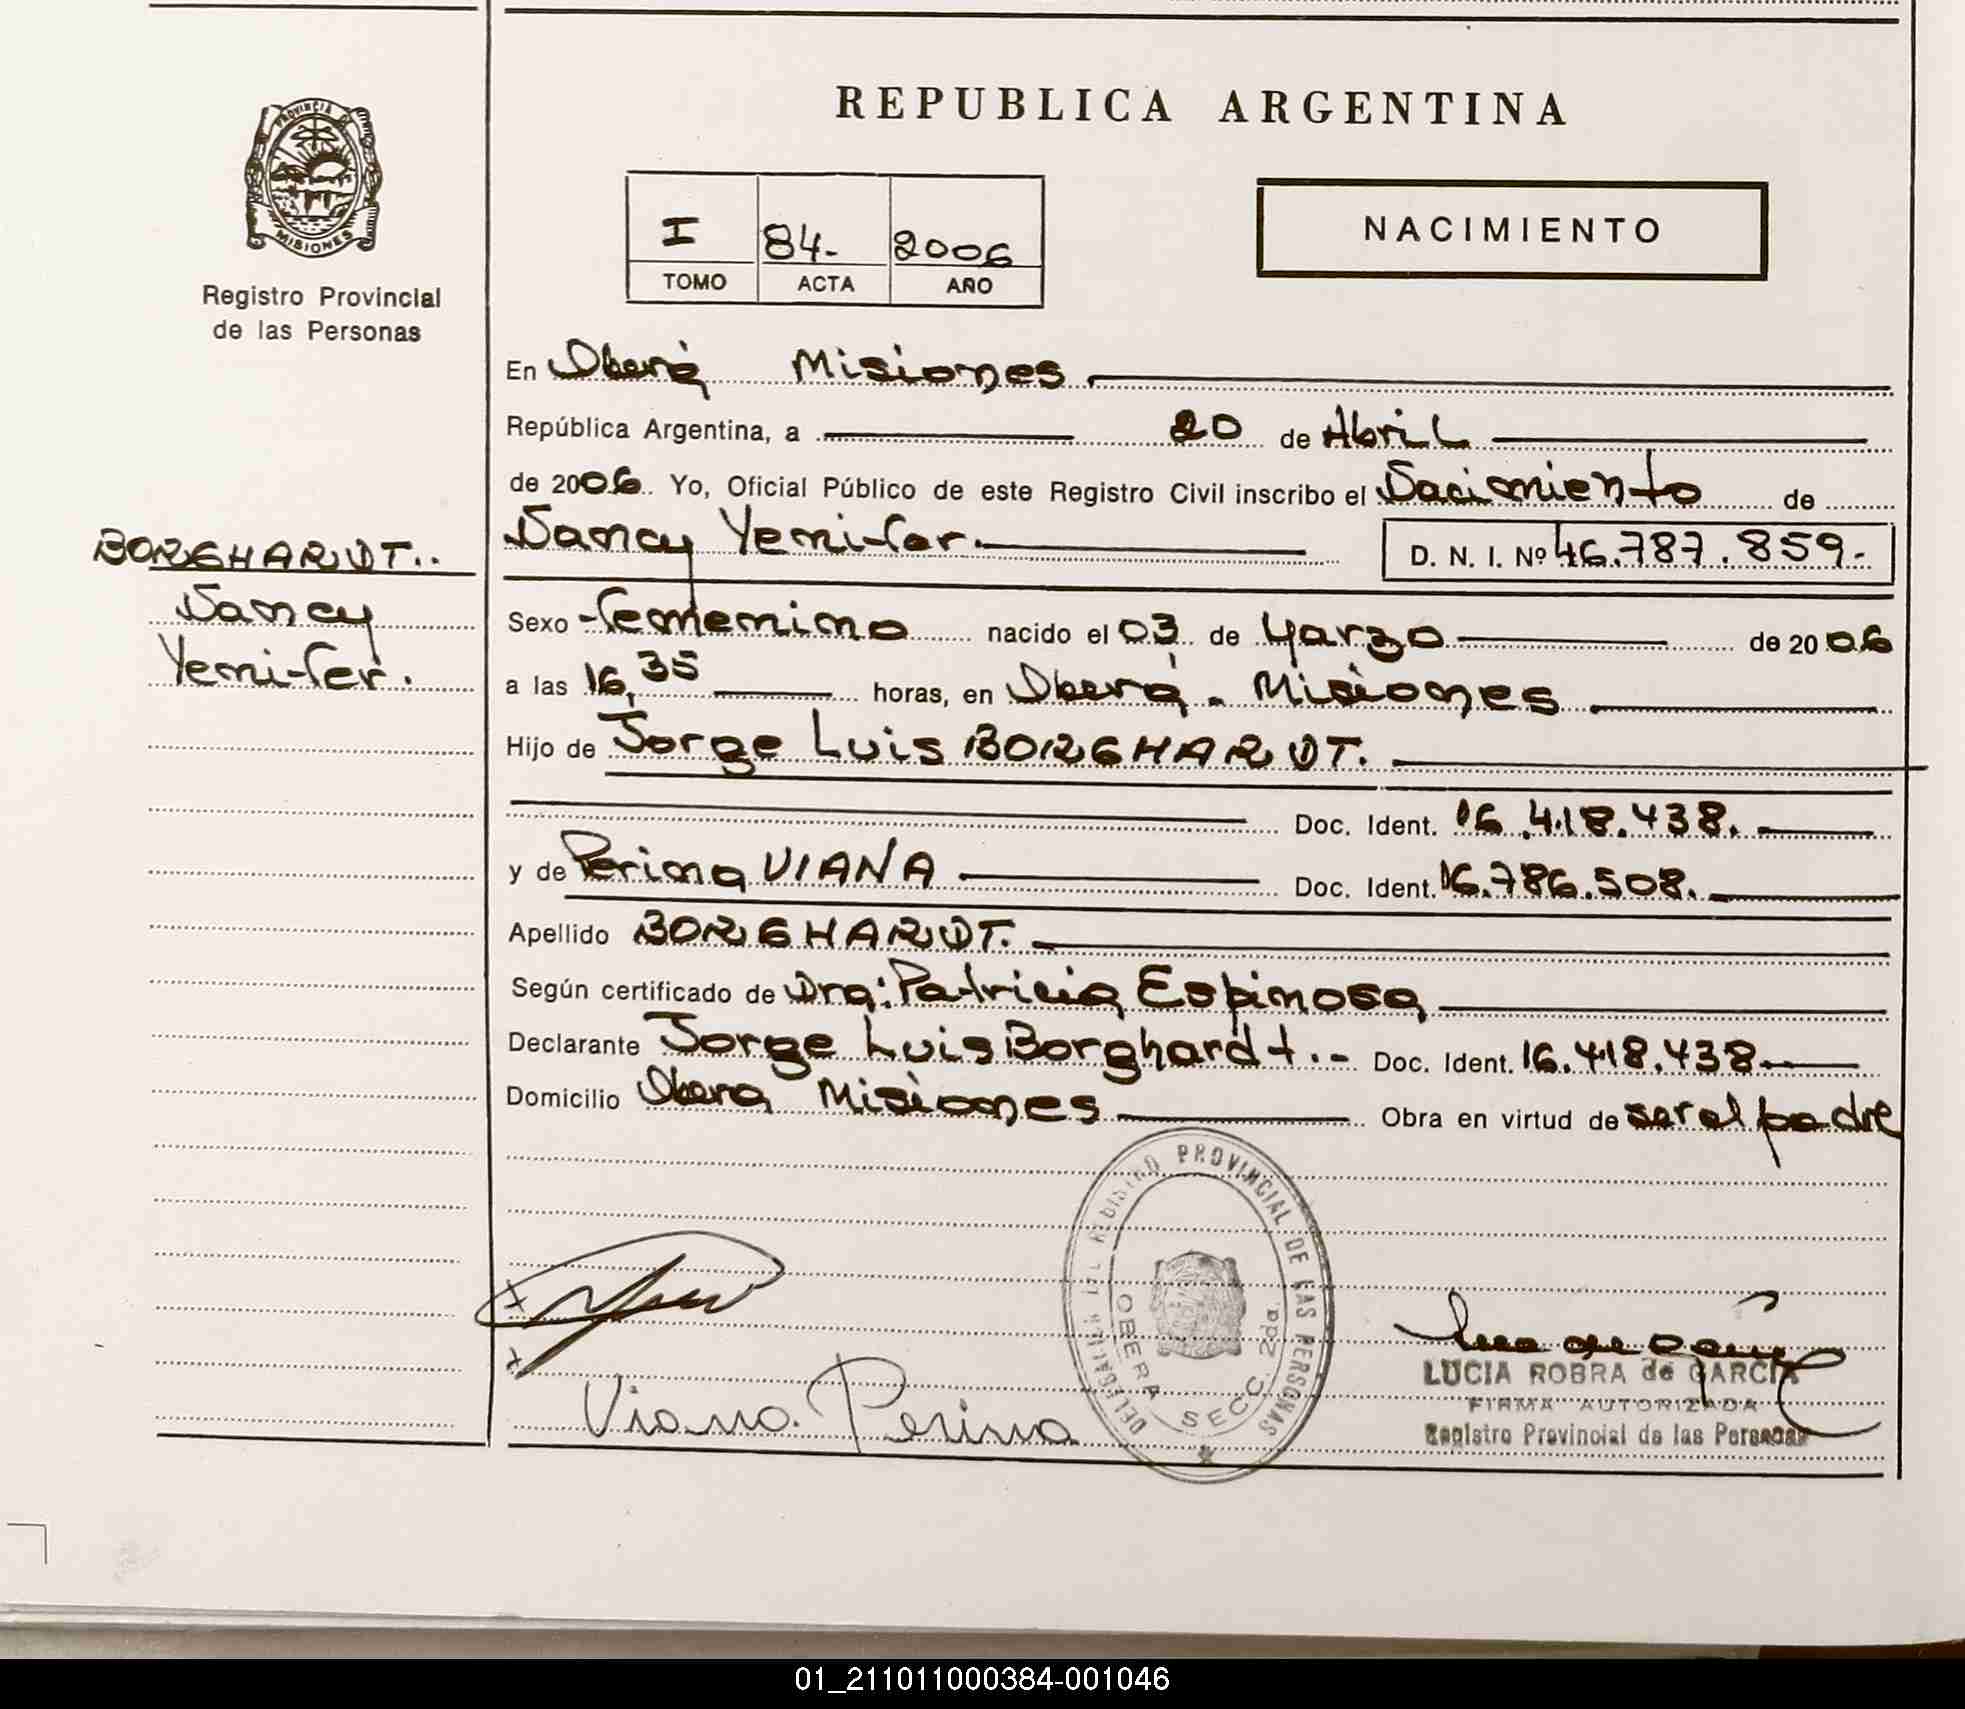 REPUBLICA ARGENTINA
PROVINCIA DE
MISIONES
Registro Provincial
de las Personas
I 84- 2006
TOMO ACTA AÑO
NACIMIENTO
En Oberá Misiones
República Argentina, a 20 de Abril
de 2006 Yo, Oficial Público de este Registro Civil inscribo el Nacimiento de
Nancy Yenifer. D. N. I. Nº 46.787.859.-
BORGHARDT..
Nancy
Yenifer.
Sexo femenino nacido el 03 de Marzo de 2006
a las 16,35 horas, en Oberá. Misiones
Hijo de Jorge Luis BORGHARDT.
Doc. Ident. 16.418.438.
y de Perina VIANA Doc. Ident. 16.786.508.
Apellido BORGHARDT.
Según certificado de Dra: Patricia Espinosa
Declarante Jorge Luis Borghardt.- Doc. Ident. 16.418.438
Domicilio Obera Misiones Obra en virtud de ser el padre
DELEGACION DEL REGISTRO PROVINCIAL DE LAS PERSONAS
OBERA SECC. 2da
Viana Perina
LUCIA ROBRA de GARCIA
FIRMA AUTORIZADA
Registro Provincial de las Personas
01_211011000384-001046